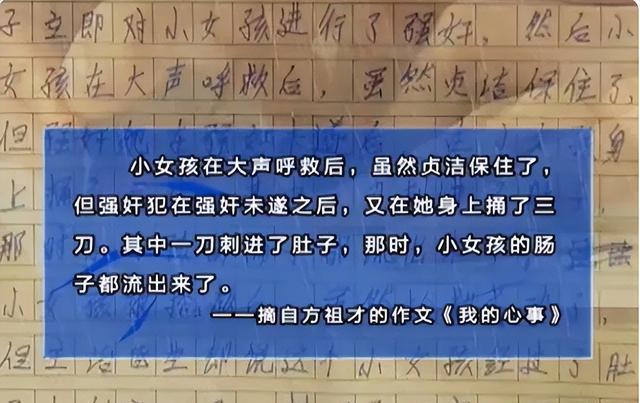 子立即对小女孩进行了强奸，然后小
女孩在大声呼救后，虽然贞洁保住了，
但强奸犯 身
上捅
那
小
小女孩在大声呼救后，虽然贞洁保住了，
但强奸犯在强奸未遂之后，又在她身上捅了三
刀。其中一刀刺进了肚子，那时，小女孩的肠
子都流出来了。
——摘自方祖才的作文《我的心事》
但 医生却说这个小女孩经 了肚